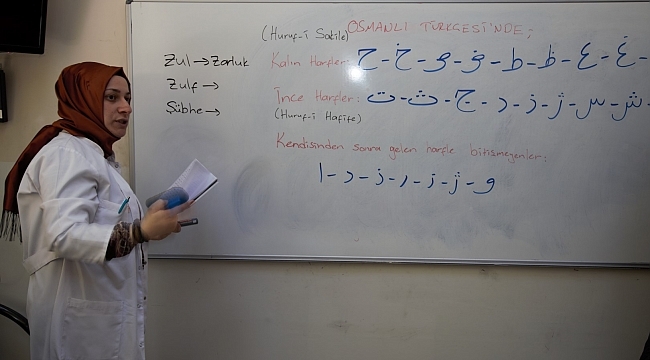 OSMANLI TÜRKÇESİ'NDE;
(Huruf-ı Sakile)
Kalın Harfler: ح - خ - ص - ض - ط - ظ - ع - غ -
İnce Harfler: ت - ث - ج - د - ز - ژ - س - ش -
(Huruf-ı Hafife)
Kendisinden sonra gelen harfle bitişmeyenler:
ا - د - ذ - ر - ز - ژ - و
Zul → Zorluk
Zulf →
Şübhe →